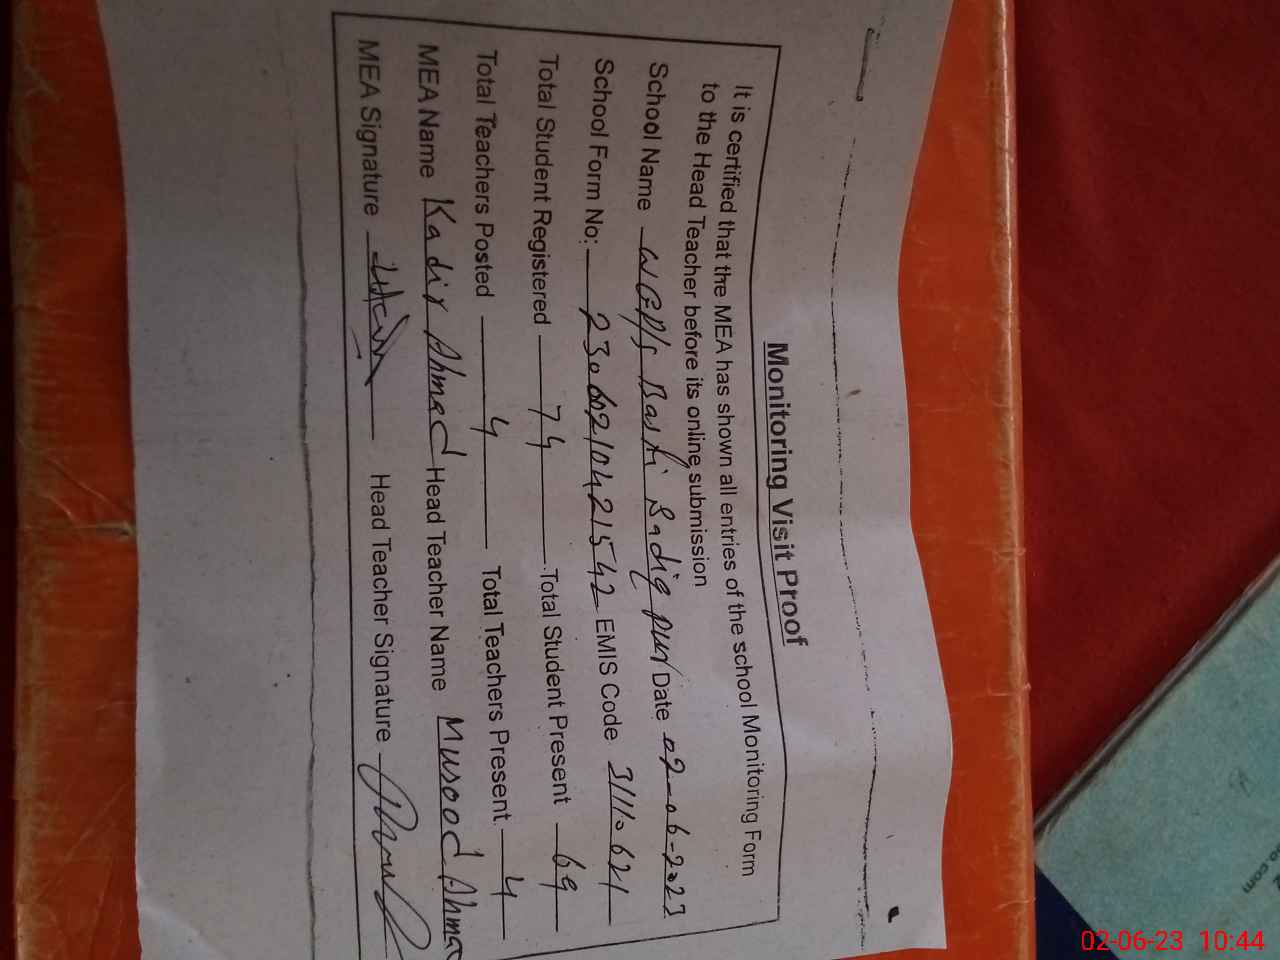 Monitoring Visit Proof
It is certified that the MEA has shown all entries of the school Monitoring Form
to the Head Teacher before its online submission
School Name Basti Sadiq pur Date 02-06-2023
School Form No: EMIS Code 31110621
Total Student Registered 74 Total Student Present 69
Total Teachers Posted 4 Total Teachers Present 4
MEA Name Kadir Ahmad Head Teacher Name Masood Ahma
MEA Signature Head Teacher Signature
02-06-23 10:44